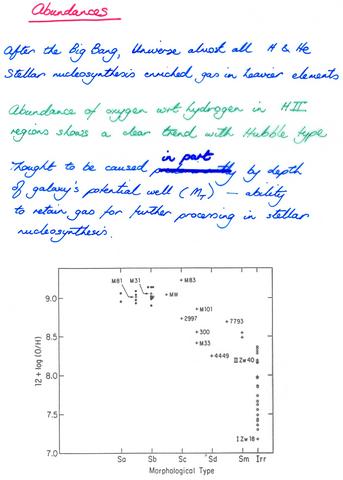 Abundances
After the Big Bang, Universe almost all H & He
Stellar nucleosynthesis enriched gas in heavier elements
Abundance of oxygen wrt hydrogen in HII
regions shows a clear trend with Hubble type
Thought to be caused in part by depth
of galaxy's potential well (M_T) — ability
to retain gas for further processing in stellar
nucleosynthesis.
M81 M31 M83
9.0 MW
M101
2997 7793
8.5 300
M33
4449 II Zw 40
8.0
12 + log (O/H)
7.5
I Zw 18
7.0
Sa Sb Sc Sd Sm Irr
Morphological Type